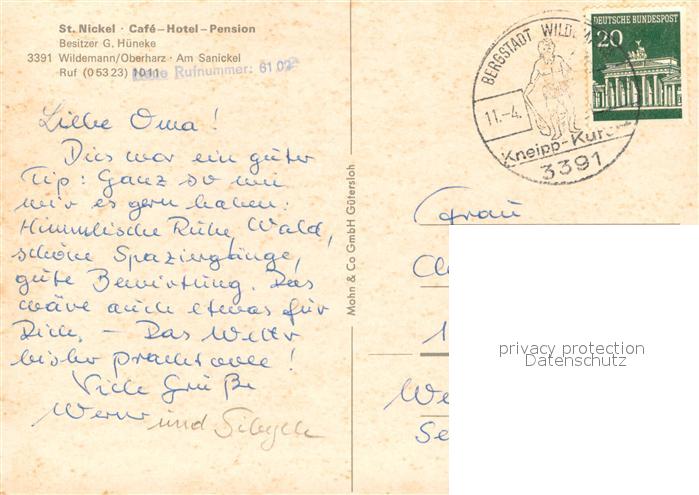 St. Nickel · Café – Hotel – Pension
Besitzer G. Hüneke
3391 Wildemann/Oberharz · Am Sanickel
Ruf (0 53 23) 1011
Neue Rufnummer: 61 02
Liebe Oma!
Dies war ein guter
Tip: Ganz so wie
wir es gern haben:
Himmlische Ruhe, Wald,
schöne Spaziergänge,
gute Bewirtung. Das
wäre auch etwas für
Dich. – Das Wetter
bisher prachtvoll!
Viele Grüße
Werner und Sibylle
Mohn & Co GmbH Gütersloh
BERGSTADT WILDEMA
11.–4.
Kneipp-Kuro
3391
DEUTSCHE BUNDESPOST
20
Frau
privacy protection
Datenschutz